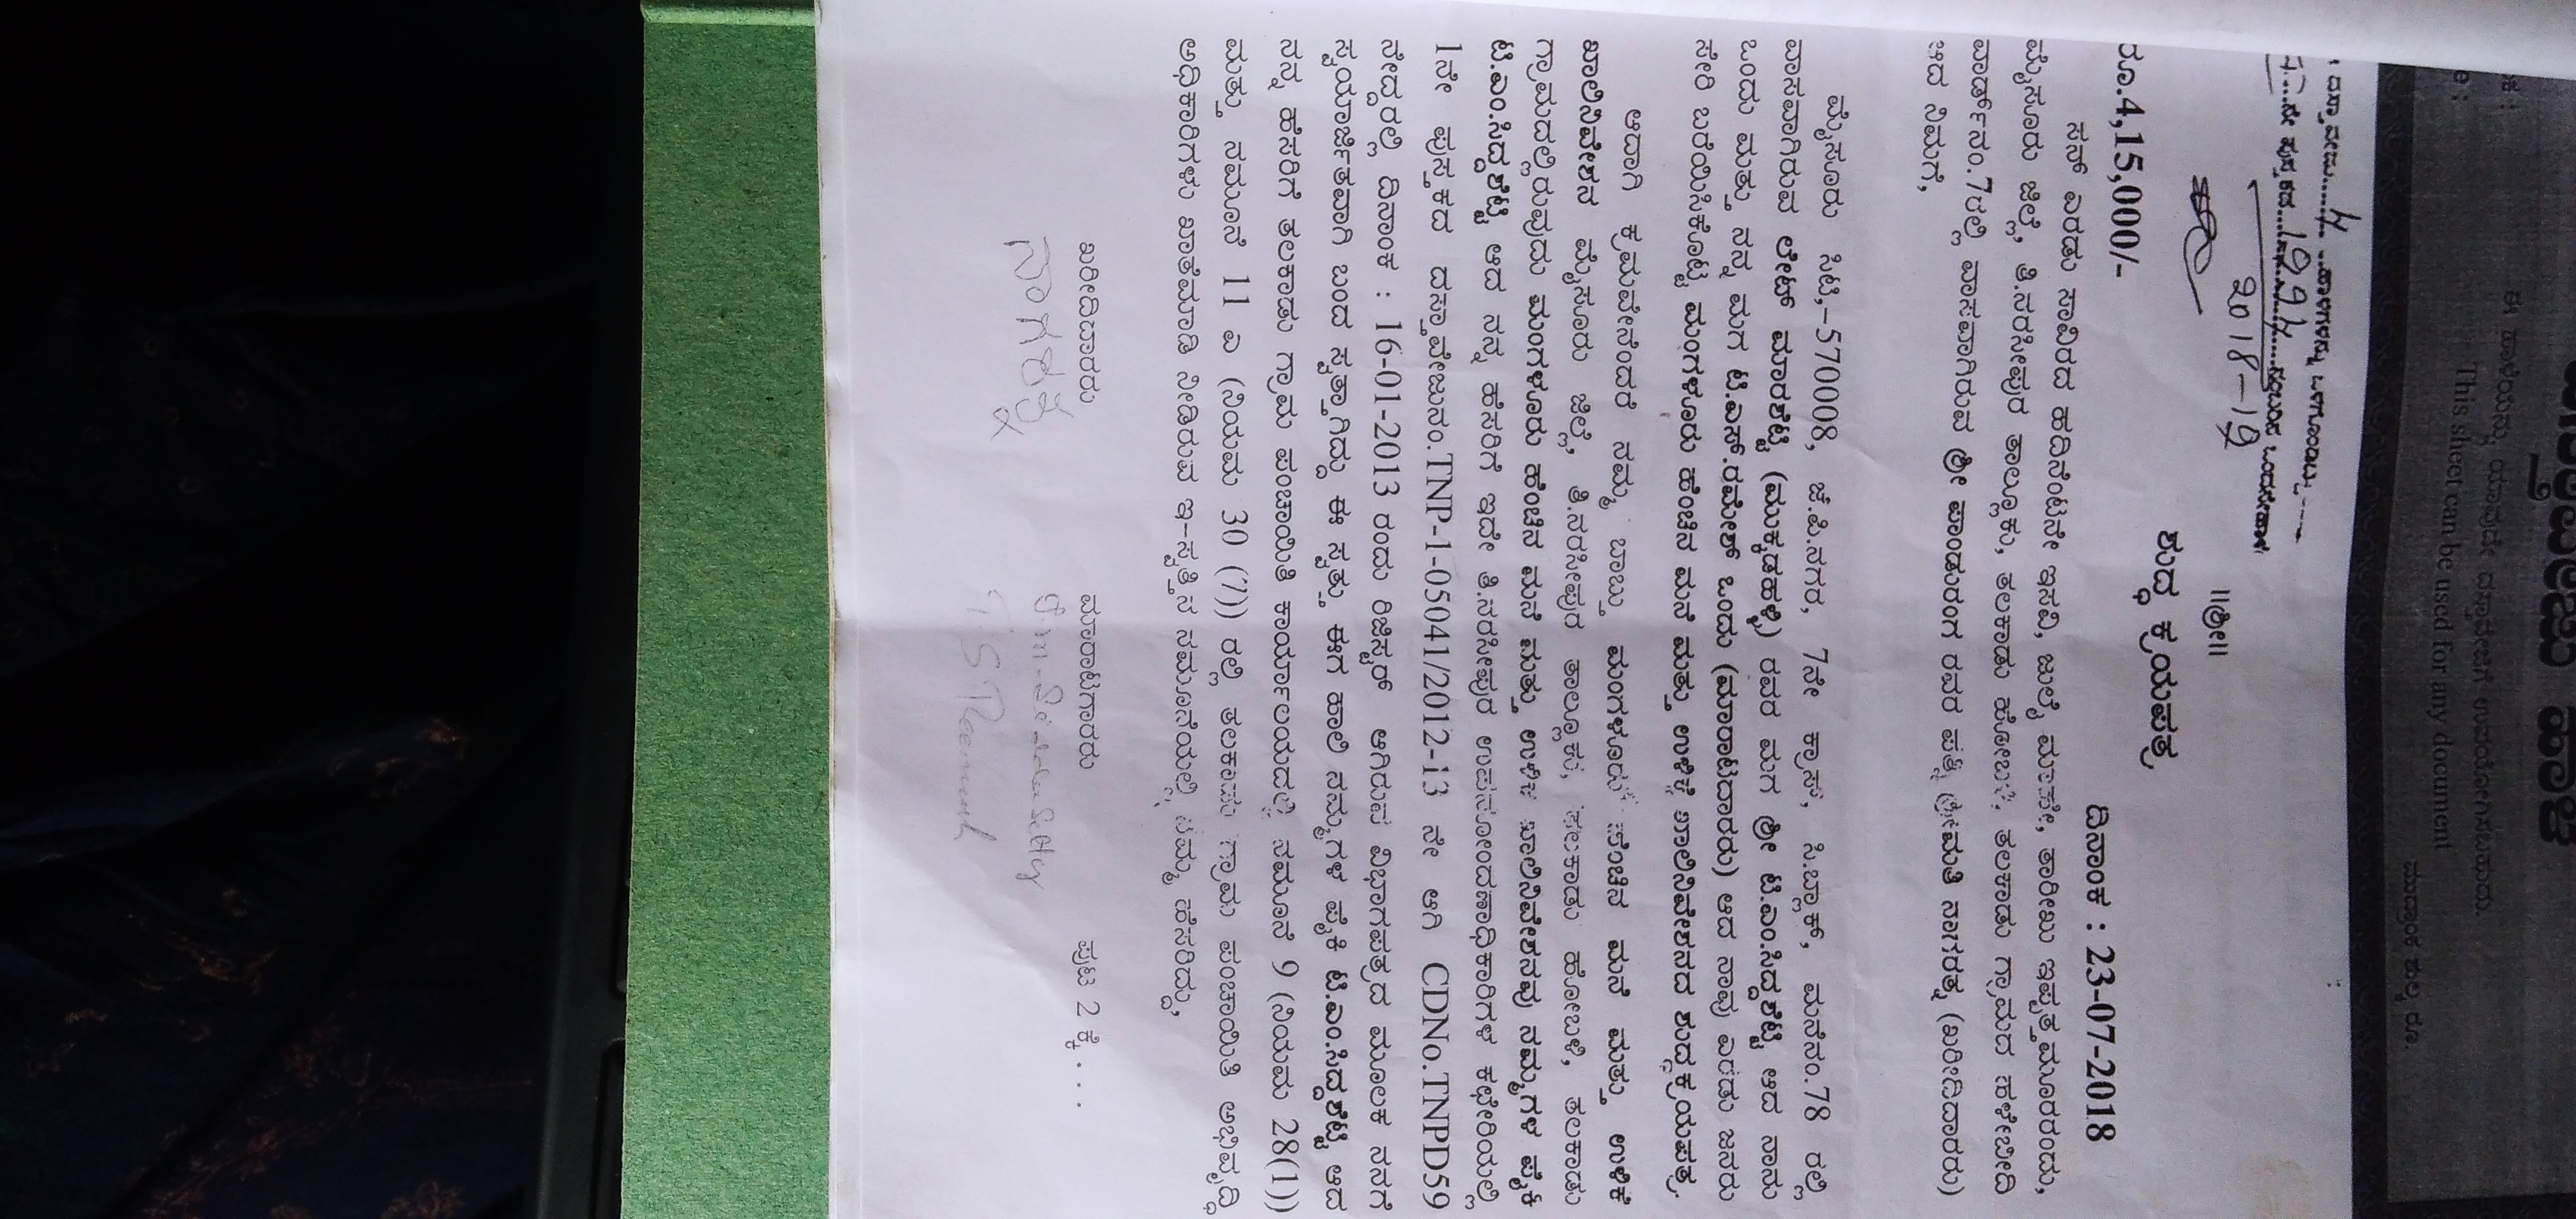 ದಸ್ತಾವೇಜು.....4...ಹಾಳೆಗಳನ್ನು ಒಳಗೊಂಡಿದ್ದು
ನೇ ಪುಟದ...1994...ನಂಬರಿನ ಒಂದನೇಹಾಳೆ
2018-19
॥ಶ್ರೀ॥
ಶುದ್ಧ ಕ್ರಯಪತ್ರ
ರೂ.4,15,000/-
ದಿನಾಂಕ : 23-07-2018
ಸನ್ ಎರಡು ಸಾವಿರದ ಹದಿನೆಂಟನೇ ಇಸವಿ, ಜುಲೈ ಮಾಹೆ, ತಾರೀಖು ಇಪ್ಪತ್ತಮೂರರಂದು,
ಮೈಸೂರು ಜಿಲ್ಲೆ, ತಿ.ನರಸೀಪುರ ತಾಲ್ಲೂಕು, ತಲಕಾಡು ಹೋಬಳಿ, ತಲಕಾಡು ಗ್ರಾಮದ ಹಳೇಬೀದಿ
ವಾರ್ಡ್‌ನಂ.7ರಲ್ಲಿ ವಾಸವಾಗಿರುವ ಶ್ರೀ ಪಾಂಡುರಂಗ ರವರ ಪತ್ನಿ ಶ್ರೀಮತಿ ನಾಗರತ್ನ (ಖರೀದಿದಾರರು)
ಆದ ನಿಮಗೆ,
ಮೈಸೂರು ಸಿಟಿ,-570008, ಜೆ.ಪಿ.ನಗರ, 7ನೇ ಕ್ರಾಸ್, ಸಿ.ಬ್ಲಾಕ್, ಮನೆನಂ.78 ರಲ್ಲಿ
ವಾಸವಾಗಿರುವ ಲೇಟ್ ಮಾರಶೆಟ್ಟಿ (ಮುಕ್ಕಡಹಳ್ಳಿ) ರವರ ಮಗ ಶ್ರೀ ಟಿ.ಎಂ.ಸಿದ್ದಶೆಟ್ಟಿ ಆದ ನಾನು
ಒಂದು ಮತ್ತು ನನ್ನ ಮಗ ಟಿ.ಎಸ್.ರಮೇಶ್ ಒಂದು (ಮಾರಾಟಗಾರರು) ಆದ ನಾವು ಎರಡು ಜನರು
ಸೇರಿ ಬರೆಯಿಸಿಕೊಟ್ಟ ಮಂಗಳೂರು ಹೆಂಚಿನ ಮನೆ ಮತ್ತು ಉಳಿಕೆ ಖಾಲಿನಿವೇಶನದ ಶುದ್ಧಕ್ರಯಪತ್ರ.
ಅದಾಗಿ ಕ್ರಮವೇನೆಂದರೆ ನಮ್ಮ ಬಾಬ್ತು ಮಂಗಳೂರು ಹೆಂಚಿನ ಮನೆ ಮತ್ತು ಉಳಿಕೆ
ಖಾಲಿನಿವೇಶನ ಮೈಸೂರು ಜಿಲ್ಲೆ, ತಿ.ನರಸೀಪುರ ತಾಲ್ಲೂಕು, ತಲಕಾಡು ಹೋಬಳಿ, ತಲಕಾಡು
ಗ್ರಾಮದಲ್ಲಿರುವುದು ಮಂಗಳೂರು ಹೆಂಚಿನ ಮನೆ ಮತ್ತು ಉಳಿಕೆ ಖಾಲಿನಿವೇಶನವು ನಮ್ಮಗಳ ಪೈಕಿ
ಟಿ.ಎಂ.ಸಿದ್ದಶೆಟ್ಟಿ ಆದ ನನ್ನ ಹೆಸರಿಗೆ ಇದೇ ತಿ.ನರಸೀಪುರ ಉಪನೋಂದಣಾಧಿಕಾರಿಗಳ ಕಛೇರಿಯಲ್ಲಿ
1ನೇ ಪುಸ್ತಕದ ದಸ್ತಾವೇಜುನಂ.TNP-1-05041/2012-13 ನೇ ಆಗಿ CDNo.TNPD59
ನೇದ್ದರಲ್ಲಿ ದಿನಾಂಕ : 16-01-2013 ರಂದು ರಿಜಿಸ್ಟರ್ ಆಗಿರುವ ವಿಭಾಗಪತ್ರದ ಮೂಲಕ ನನಗೆ
ಸ್ವಯಾರ್ಜಿತವಾಗಿ ಬಂದ ಸ್ವತ್ತಾಗಿದ್ದು ಈ ಸ್ವತ್ತು ಈಗ ಹಾಲಿ ನಮ್ಮಗಳ ಪೈಕಿ ಟಿ.ಎಂ.ಸಿದ್ದಶೆಟ್ಟಿ ಆದ
ನನ್ನ ಹೆಸರಿಗೆ ತಲಕಾಡು ಗ್ರಾಮ ಪಂಚಾಯಿತಿ ಕಾರ್ಯಾಲಯದಲ್ಲಿ ನಮೂನೆ 9 (ನಿಯಮ 28(1))
ಮತ್ತು ನಮೂನೆ 11 ಎ (ನಿಯಮ 30 (7)) ರಲ್ಲಿ ತಲಕಾಡು ಗ್ರಾಮ ಪಂಚಾಯಿತಿ ಅಭಿವೃದ್ಧಿ
ಅಧಿಕಾರಿಗಳು ಖಾತೆಮಾಡಿ ನೀಡಿರುವ ಇ-ಸ್ವತ್ತಿನ ನಮೂನೆಯಲ್ಲಿ ನಮ್ಮ ಹೆಸರಿದ್ದು,
ಖರೀದಿದಾರರು ಮಾರಾಟಗಾರರು ಪುಟ 2 ಕ್ಕೆ . . . .
ನಾಗರತ್ನ
T.S Ramesh
ಈ ಹಾಳೆಯನ್ನು ಯಾವುದೇ ದಸ್ತಾವೇಜಿಗೆ ಉಪಯೋಗಿಸಬಹುದು.
This sheet can be used for any document